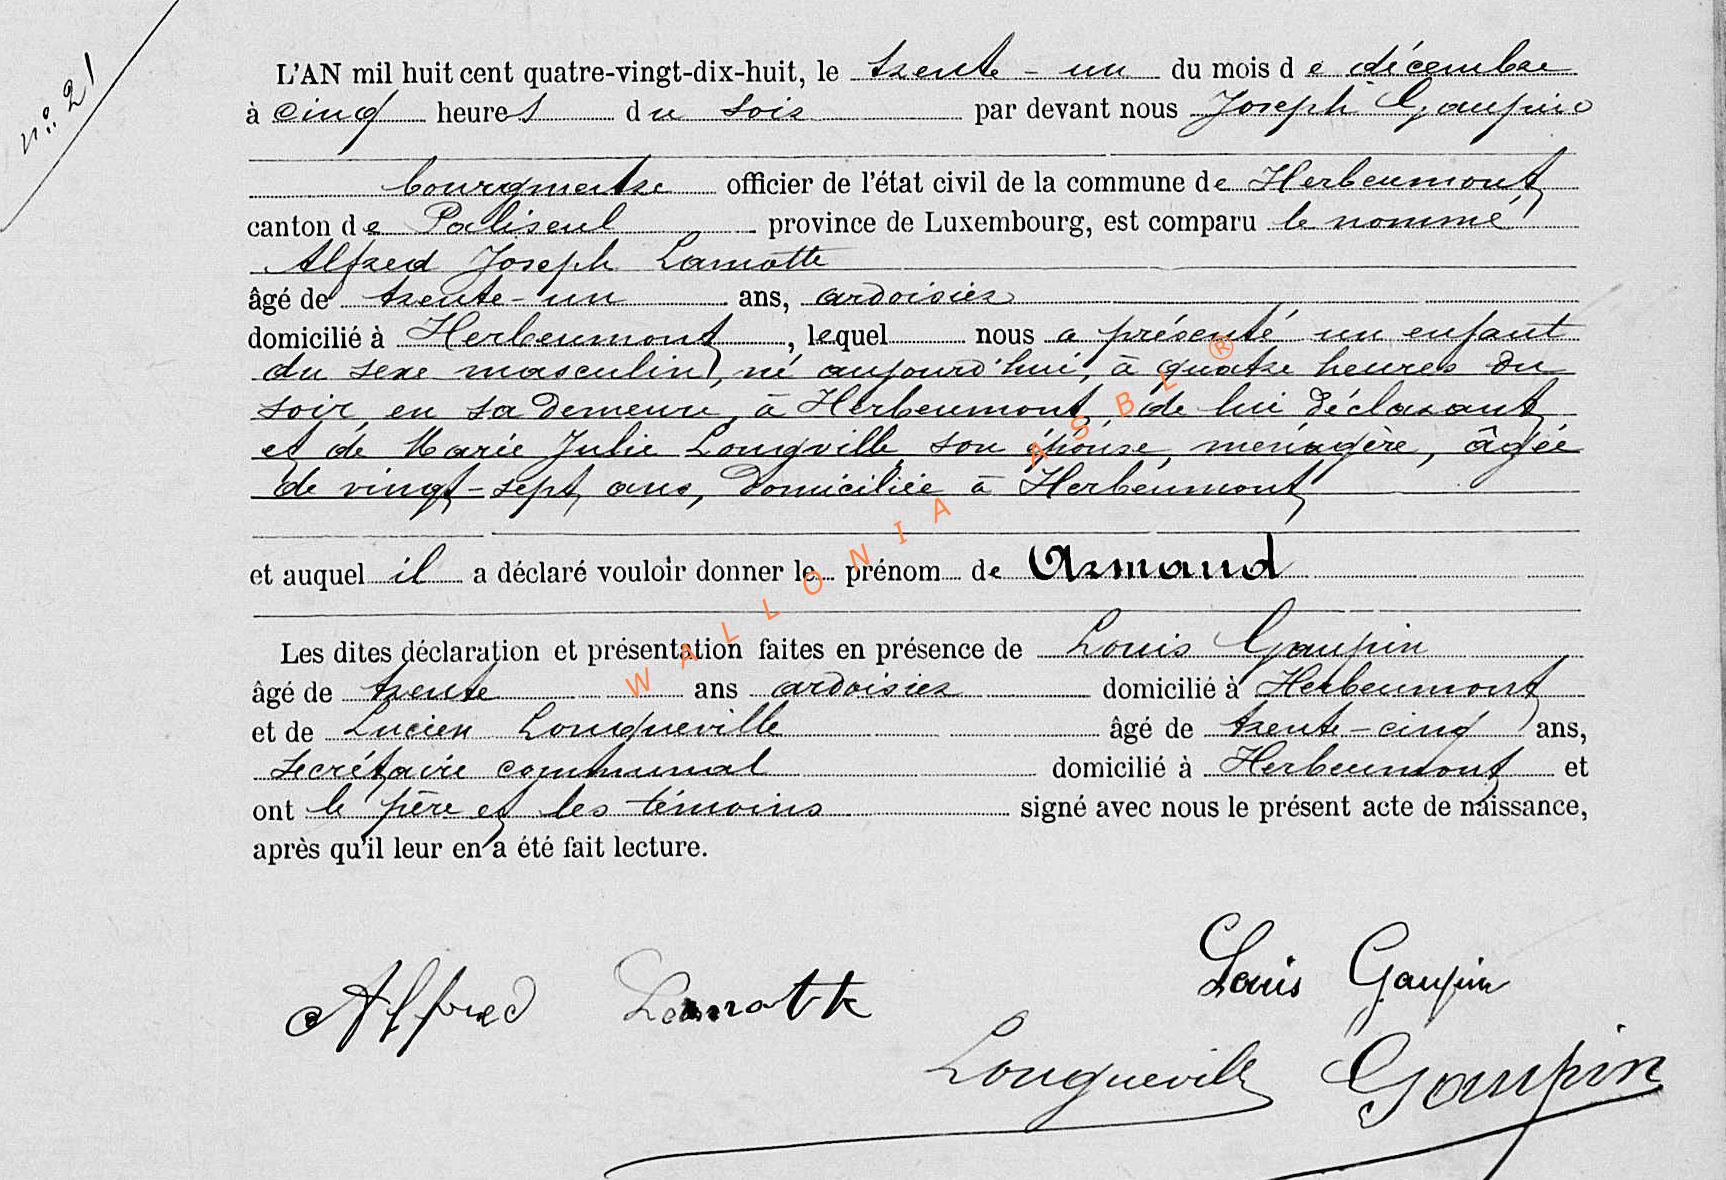 n° 21
L'AN mil huit cent quatre-vingt-dix-huit, le trente-un du mois de décembre
à cinq heures du soir par devant nous Joseph Gaupin
bourgmestre officier de l'état civil de la commune de Herbeumont
canton de Paliseul province de Luxembourg, est comparu le nommé
Alfred Joseph Lamotte
âgé de trente-un ans, ardoisier
domicilié à Herbeumont, lequel nous a présenté un enfant
du sexe masculin, né aujourd'hui, à quatre heures du
soir, en sa demeure, à Herbeumont, de lui déclarant
et de Marie Julie Longville, son épouse, ménagère, âgée
de vingt-sept ans, domiciliée à Herbeumont
et auquel il a déclaré vouloir donner le prénom de Armand
Les dites déclaration et présentation faites en présence de Louis Gaupin
âgé de trente ans ardoisier domicilié à Herbeumont
et de Lucien Longueville âgé de trente-cinq ans,
secrétaire communal domicilié à Herbeumont et
ont le père et les témoins signé avec nous le présent acte de naissance,
après qu'il leur en a été fait lecture.
Alfred Lamotte Louis Gaupin
Longueville Gaupin
WALLONIA ASBL ®